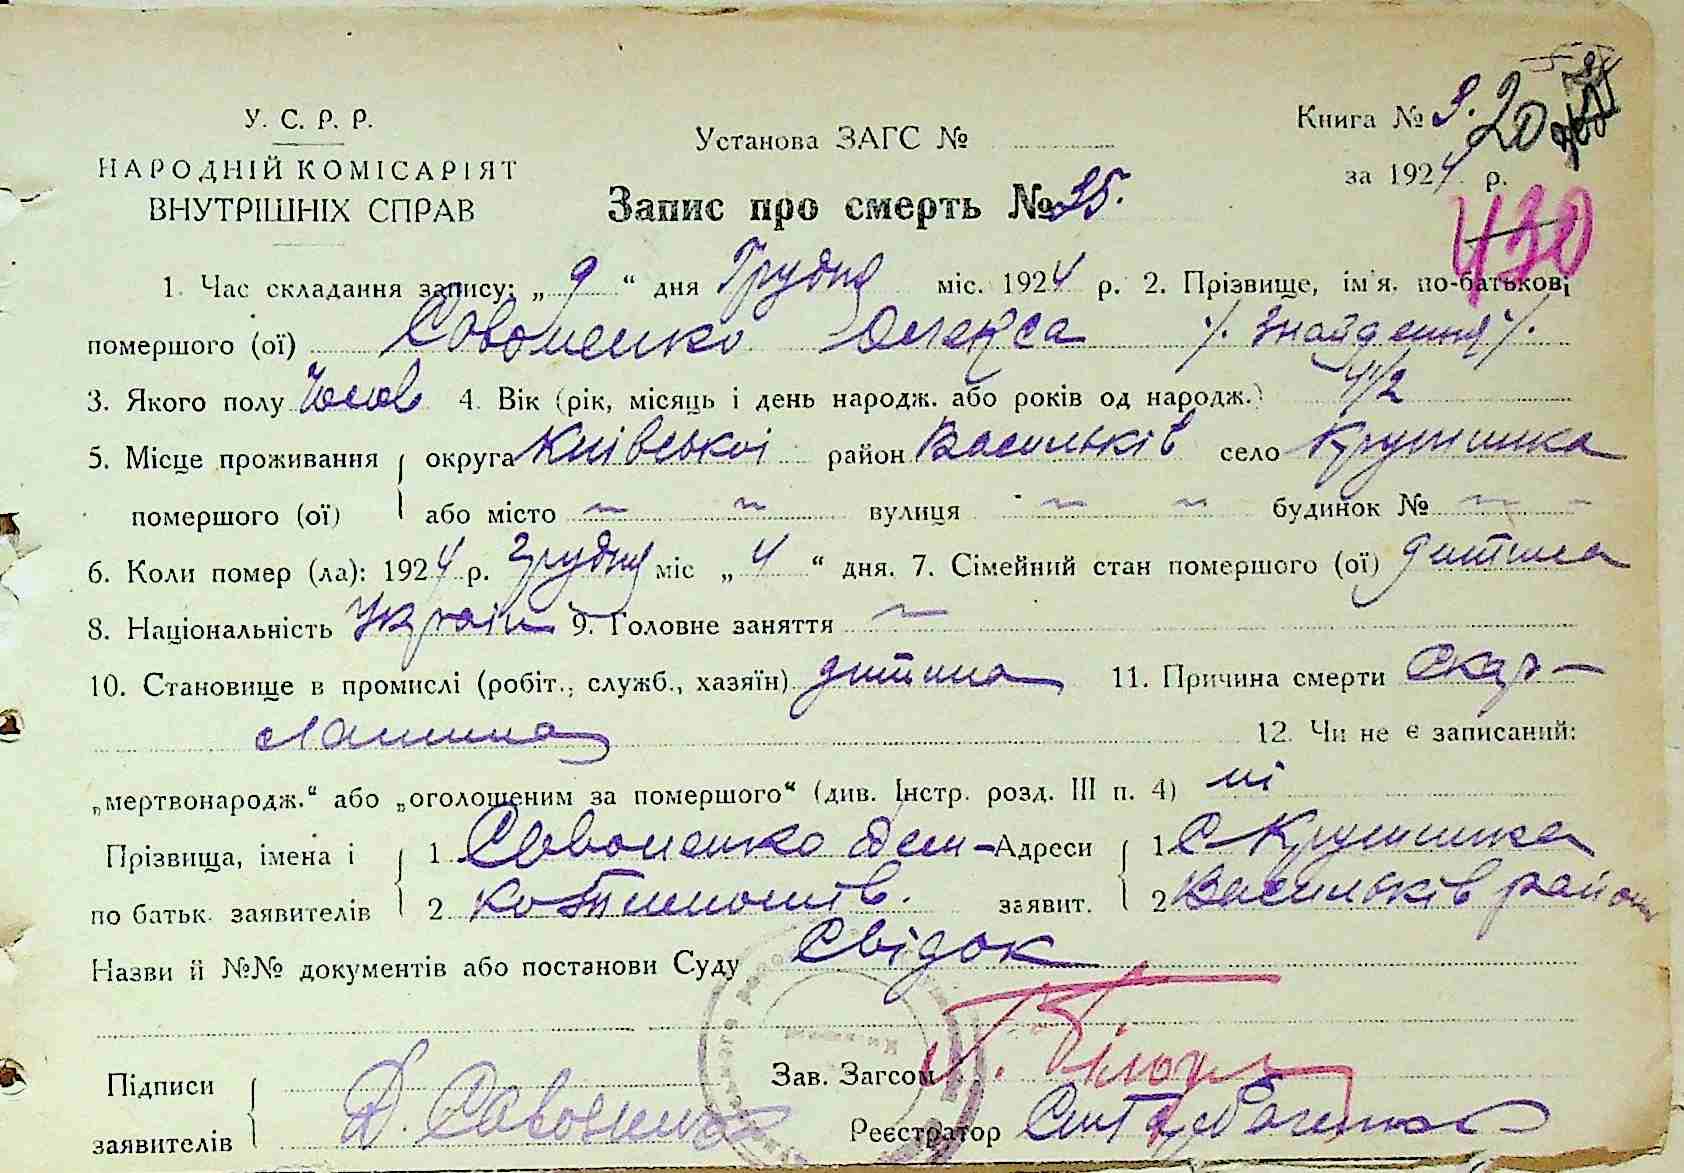 У. С. Р. Р.
НАРОДНІЙ КОМІСАРІЯТ
ВНУТРІШНІХ СПРАВ
Установа ЗАГС №
Книга № 9. 20
за 1924 р.
Запис про смерть № 95.
430
1. Час складання запису: „ 9 “ дня Грудня міс. 1924 р. 2. Прізвище, ім'я, по-батькові
помершого (ої) Савоненко Олекса
3. Якого полу Чолов 4. Вік (рік, місяць і день народж. або років од народж.) 4 1/2
5. Місце проживання округа Київської район Васильків село Крушинка
помершого (ої) або місто ~ ~ вулиця ~ ~ будинок № ~ -
6. Коли помер (ла): 1924 р. Грудня міс „ 4 “ дня. 7. Сімейний стан помершого (ої) дитина
8. Національність Україн 9. Головне заняття ~
10. Становище в промислі (робіт., служб., хазяїн) дитина 11. Причина смерти Скар-
латина 12. Чи не є записаний:
„мертвонародж.“ або „оголошеним за помершого“ (див. Інстр. розд. III п. 4) ні
Прізвища, імена і 1 Савоненко Дем- Адреси 1 С Крушинка
по батьк. заявителів 2 ко заявит. 2 Васильків район
Назви й №№ документів або постанови Суду Свідок
Підписи Зав. Загсом
заявителів Д. Савоненко Реєстратор